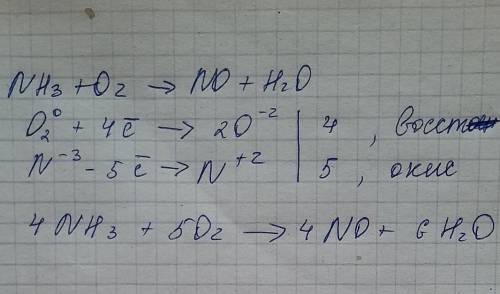 NH3 + O2 → NO + H2O
O2⁰ + 4ē → 2O⁻² | 4 , восст
N⁻³ - 5ē → N⁺² | 5 , окис
4 NH3 + 5O2 → 4 NO + 6 H2O